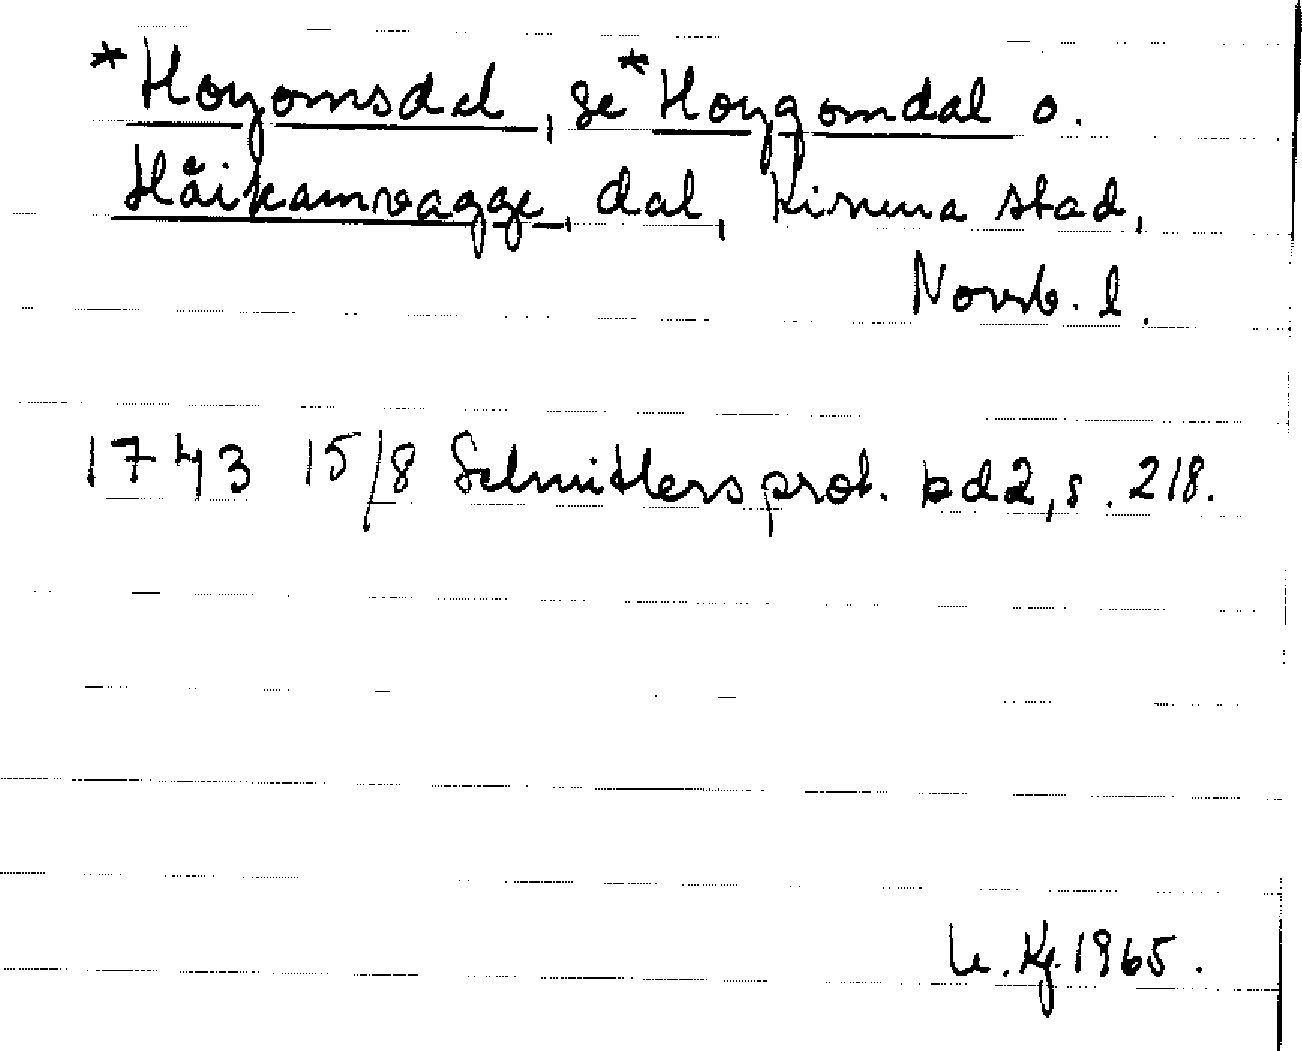 *Hoyomsdal, se *Hoygomdal o.
Håikamvagge, dal, Kiruna stad,
Norrb. l.
1743 15/8 Schnitlers prot. bd 2, s. 218.
U. Kj. 1965.